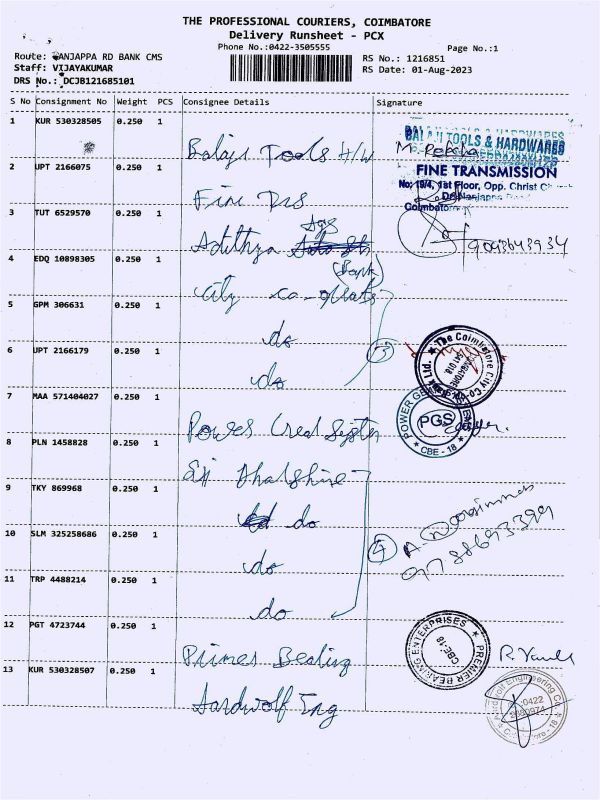 THE PROFESSIONAL COURIERS, COIMBATORE
Delivery Runsheet - PCX
Phone No.:0422-3505555
Page No.:1
Route: NANJAPPA RD BANK CMS
RS No.: 1216851
Staff: VIJAYAKUMAR
RS Date: 01-Aug-2023
DRS No.: DCJB121685101
S No Consignment No Weight PCS Consignee Details Signature
1 KUR 530328505 0.250 1 Balaji Tools H/W
BALAJI TOOLS & HARDWARES
2 UPT 2166075 0.250 1 Fine Trs
FINE TRANSMISSION
No: 19/4, 1st Floor, Opp. Christ
Coimbatore
3 TUT 6529570 0.250 1 Adithya Ags
9003643934
4 EDQ 10898305 0.250 1 City co-operate (Bank)
5 GPM 306631 0.250 1 do
6 UPT 2166179 0.250 1 do
3
The Coimbatore City Co-op
7 MAA 571404027 0.250 1 Power Gead System
POWER
PGS
CBE - 18
8 PLN 1458828 0.250 1 Sri Dhalshine
9 TKY 869968 0.250 1 do
10 SLM 325258686 0.250 1 do
11 TRP 4488214 0.250 1 do
4
9788693399
12 PGT 4723744 0.250 1 Primer Bearing
PREMIER BEARING ENTERPRISES
CBE-18
13 KUR 530328507 0.250 1 Aardwolf Eng
Engineering Co.
0422
2380974